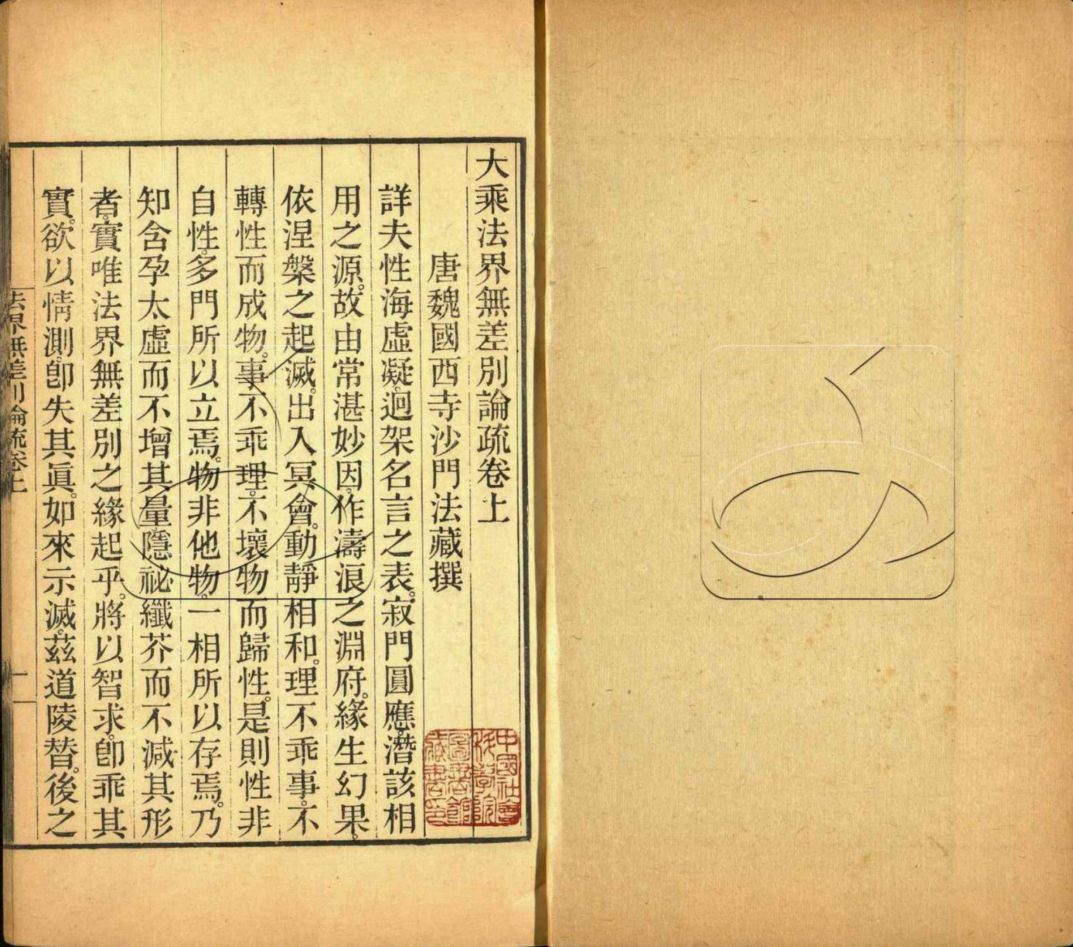 大乘法界無差別論疏卷上
唐魏國西寺沙門法藏撰
詳夫性海虛凝。迥架名言之表。寂門圓應。潛該相
用之源。故由常湛妙因。作濤浪之淵府。緣生幻果。
依涅槃之起滅。出入冥會。動靜相和。理不乖事。不
轉性而成物。事不乖理。不壞物而歸性。是則性非
自性。多門所以立焉。物非他物。一相所以存焉。乃
知含孕太虛而不增其量。隱祕纖芥而不減其形
者。實唯法界無差別之緣起乎。將以智求。卽乖其
實。欲以情測。卽失其眞。如來示滅。茲道陵替。後之
法界無差別論疏卷上
一
中國社會
科學院
圖書館
藏書印